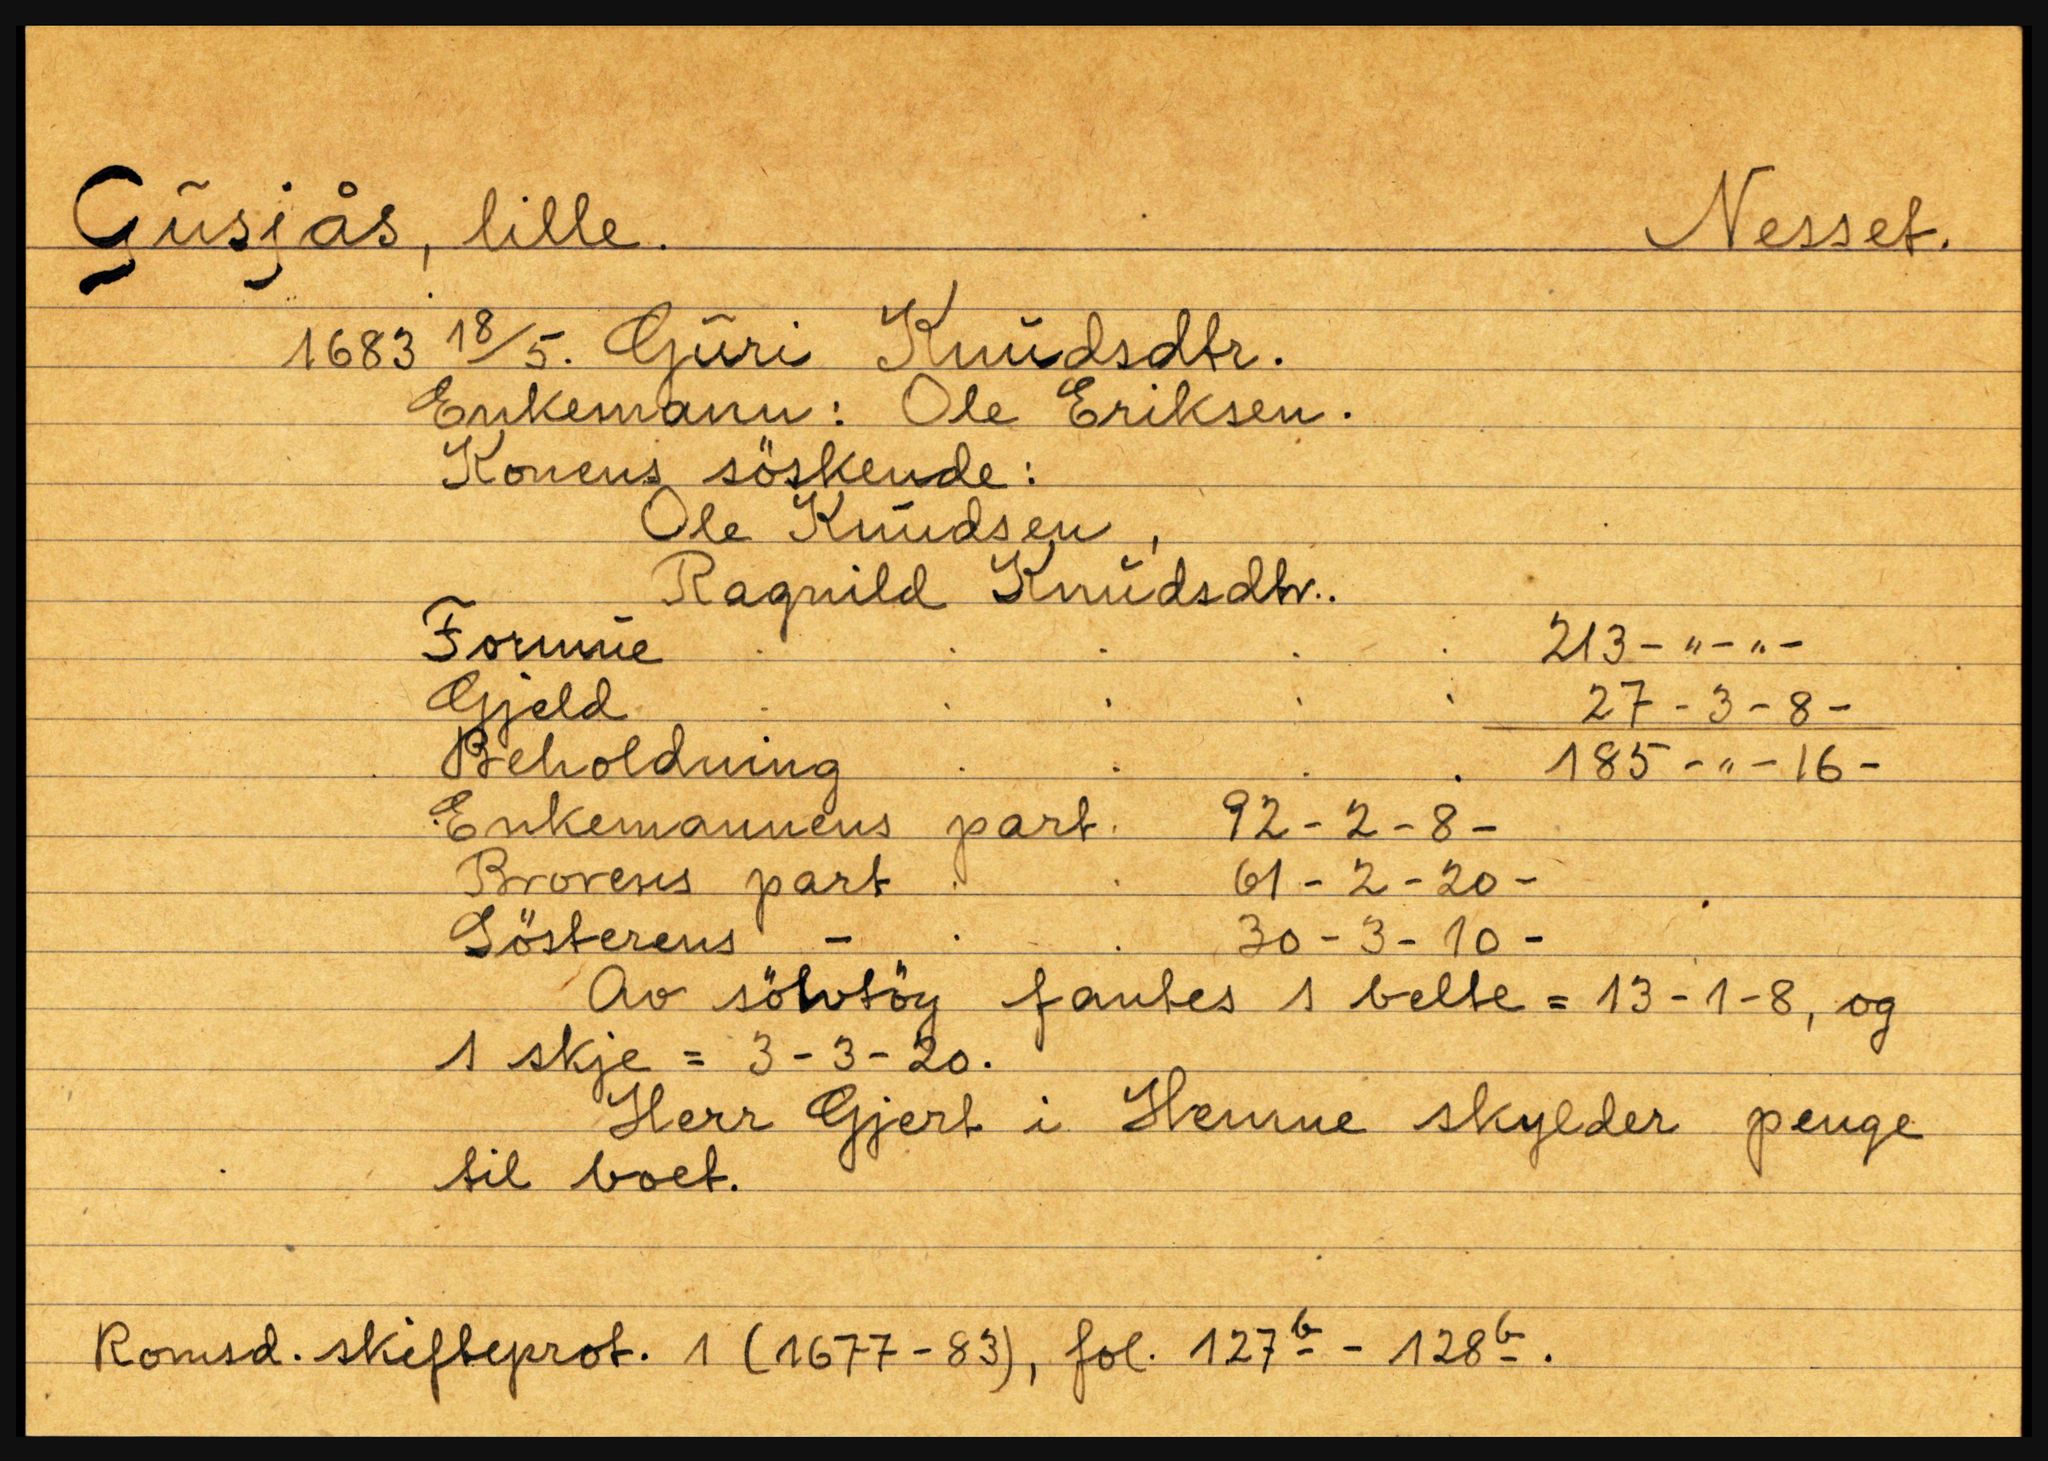 Gusjås, lille. Nesset.
1683 18/5. Guri Knudsdtr.
Enkemann: Ole Eriksen.
Konens söskende:
Ole Knudsen,
Ragnild Knudsdtr..
Formue . . . . . 213 - " - " -
Gjeld . . . . . 27 - 3 - 8 -
Beholdning . . . . 185 - " - 16 -
Enkemannens part. 92 - 2 - 8 -
Brorens part . . 61 - 2 - 20 -
Sösterens - . . 30 - 3 - 10 -
Av sölvtöy fantes 1 belte = 13 - 1 - 8, og
1 skje = 3 - 3 - 20.
Herr Gjert i Hemne skylder penge
til boet.
Romsd. skifteprot. 1 (1677 - 83), fol. 127b - 128b.